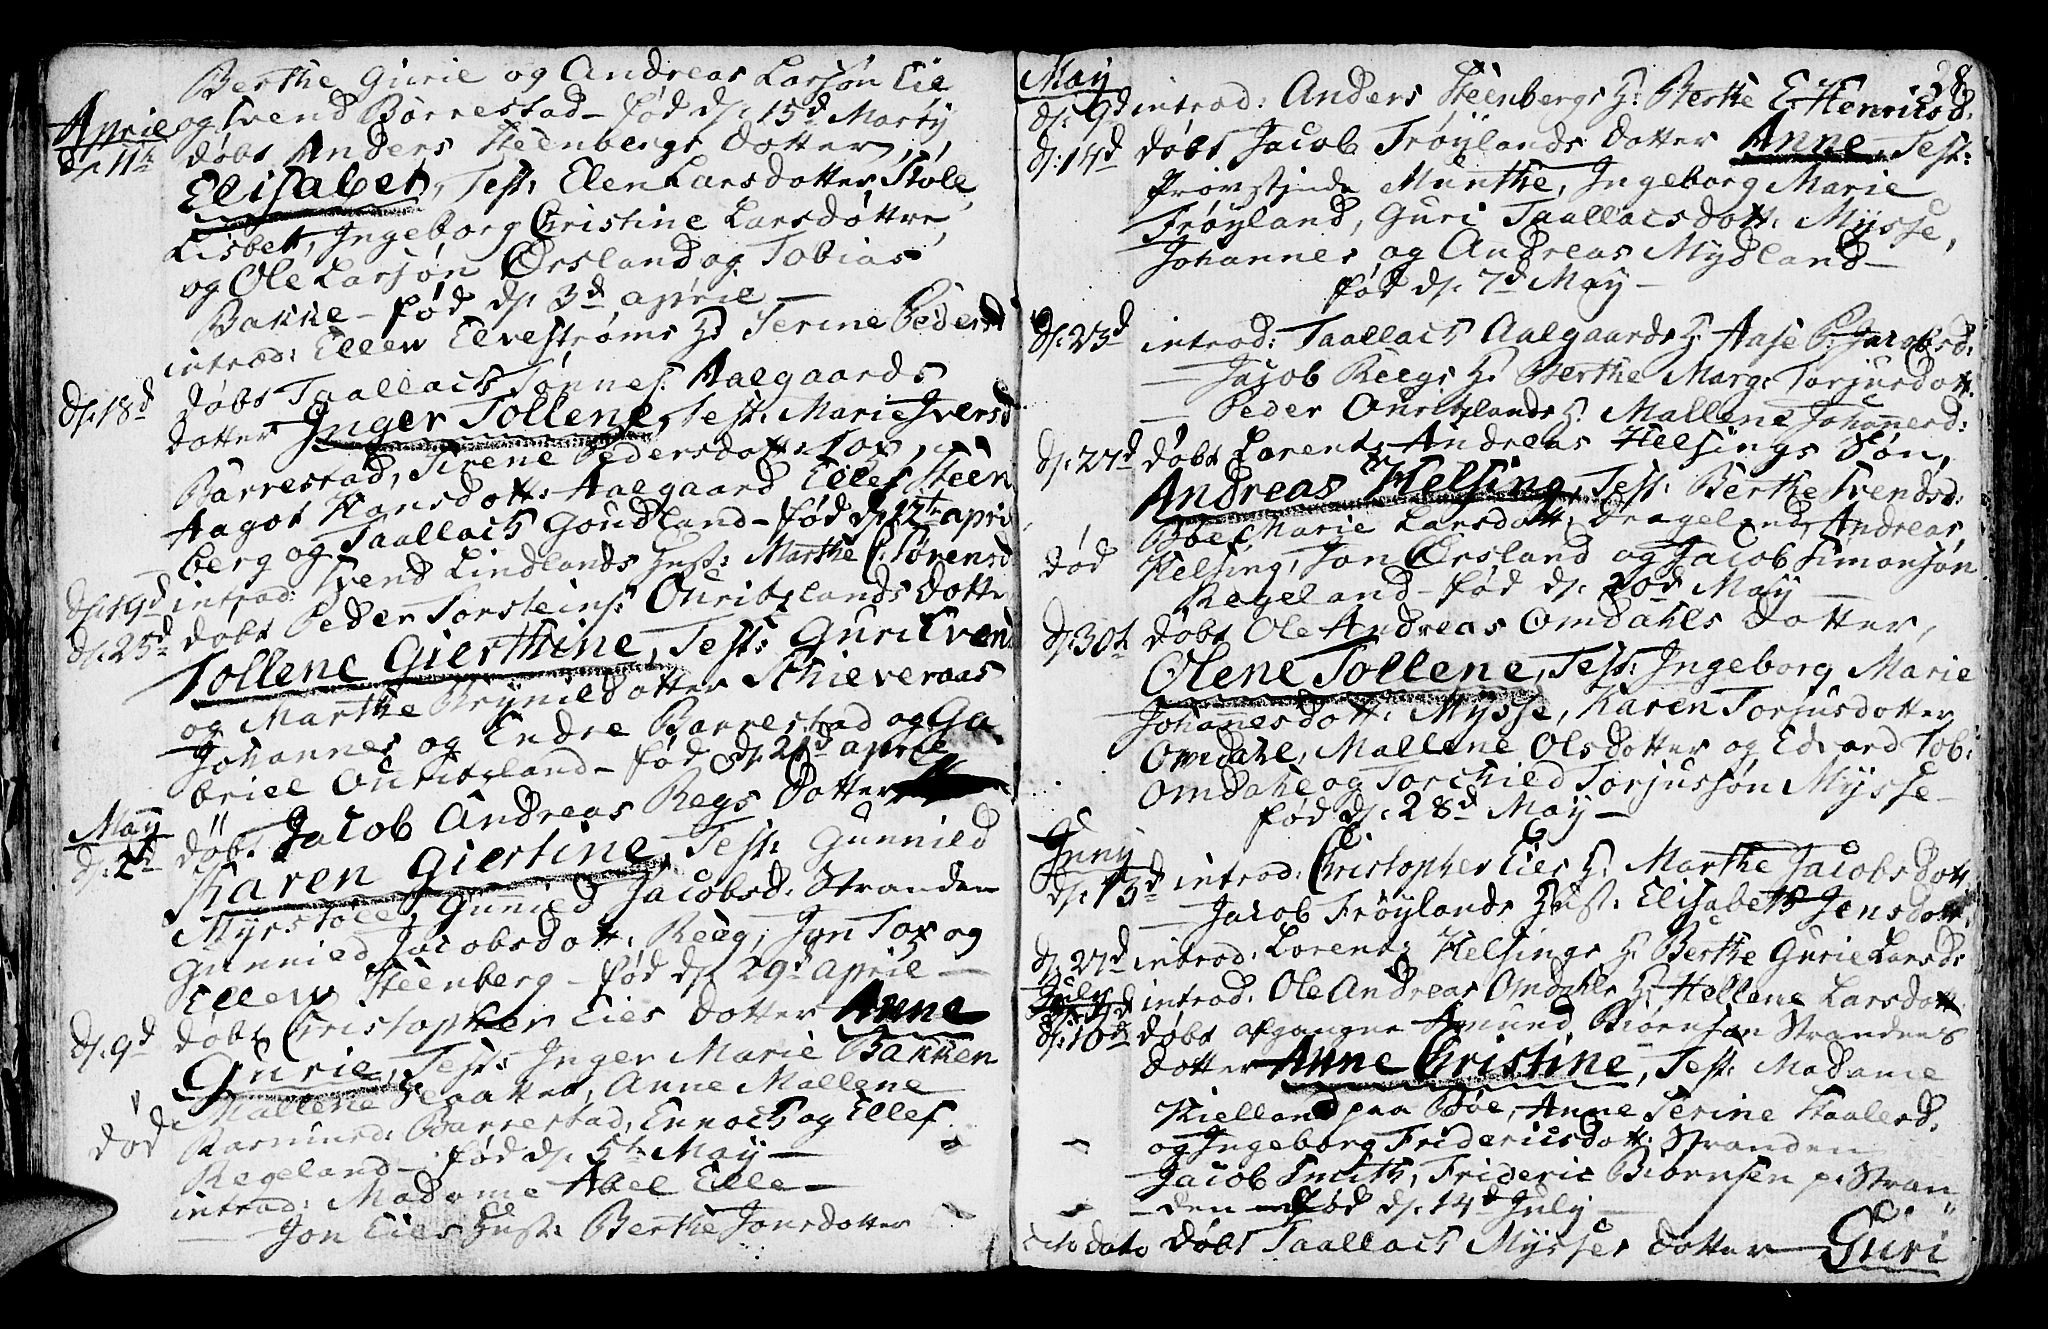 Berthe Gurie og Andreas Larsøn Eie
og Svend Barrestad – fød d. 15d Martÿ
Aprie
d. 11te døbt Anders Steenbergs dotter,
Elisabet, Test: Elen Larsdotter Støle
Lisbet, Ingeborg Christine Larsdøttre,
og Ole Larsøn Ørsland og Tobias
Bakke – fød d. 3d aprie –
introd: Ellew Elvestrøms H: Serine Pedersd
d. 18d døbt Taallach Tønnes: Aalgaards
dotter Inger Tollene, Test: Marie Iversd
Barrestad, Sirene Pedersdott: Tox,
Aagot Hansdott: Aalgaard Ellef Steen
berg og Taallach Goudland – fød d. 12te aprie
d. 19d introd: Svend Lindlands Hust: Marthe C. Sørensd
d. 25d døbt Peder Torsteins: Ouriglands dotter
Tollene Gierthine, Test: Guri Svend
og Marthe Brynieldotter Schieveraas
Johannes og Endre Barrestad og Ga-
briel Ourigland – fød d. 21d aprie
May
d. 2d døbt Jacob Andreas Regs dotter
Karen Giertine, Test: Gunnild
Myrstøel, Gunild Jacobsd: Stranden
Gunnild Jacobsdott: Reeg, Jon Tox og
Ellew Steenberg – fød d. 29d aprie –
d. 9d døbt Christopher Eies dotter Anne
Gurie, Test: Inger Marie Bakken
Mallene Haaket, Anne Mallene
død Rasmusd: Barrestad, Ennoch og Ellef
Regeland – fød d. 5te May –
introd: Madame Abel Elle –
– Jon Eies Hust: Berthe Jonsdotter
28
May
d. 9d introd: Anders Steenbergs H: Berthe E. Henricsd:
d. 14d døbt Jacob Frøylands dotter Anne, Test:
Provstinde Munthe, Ingeborg Marie
Frøyland, Guri Taallacsdott: Mÿsse,
Johannes og Andreas Mydland –
fød d. 7d May –
d. 23d introd: Taallach Aalgaards H: Aase P. Jacobsd:
– Jacob Reegs H: Berthe Marg: Torjusdott:
– Peder Ouriglands H: Mallene Johannesd:
d. 27d døbt Lorents Andreas Helsings Søn,
Andreas Helsing, Test: Berthe Svendsd:
Bøe, Marie Larsdott: Drageland, Andreas
død Helsing, Jon Ørsland og Jacob Simonsøn
Regeland – fød d. 20d May –
d. 30te døbt Ole Andreas Omdahls dotter,
Olene Tollene, Test: Ingeborg Marie
Johanesdott: Mÿsse, Karen Torjusdotter
Omdahl, Mallene Olsdotter og Edvard Tob:
Omdahl og Torchield Torjussøn Mÿsse –
fød d. 28d May –
Juny
d. 13d introd: Christopher Eies H: Marthe Jacobsdott
– Jacob Frøylands Hust: Elisabeth Jensdott:
d. 27d introd: Lorents Helsings H: Berthe Gurie Larsd:
July introd: Ole Andreas Omdahls H: Hellene Larsdott
d. 10d døbt afgangne Amund Biørnsøn Strandens
dotter Anne Christine, Test: Madame
Kielland paa Bøe, Anne Serine Staalesd.
og Ingeborg Fridericsdott: Stranden
Jacob Smith, Frideric Biørnsen p: Stran
den – fød d. 14d July –
dito dato døbt Taallach Mÿsses dotter Guri